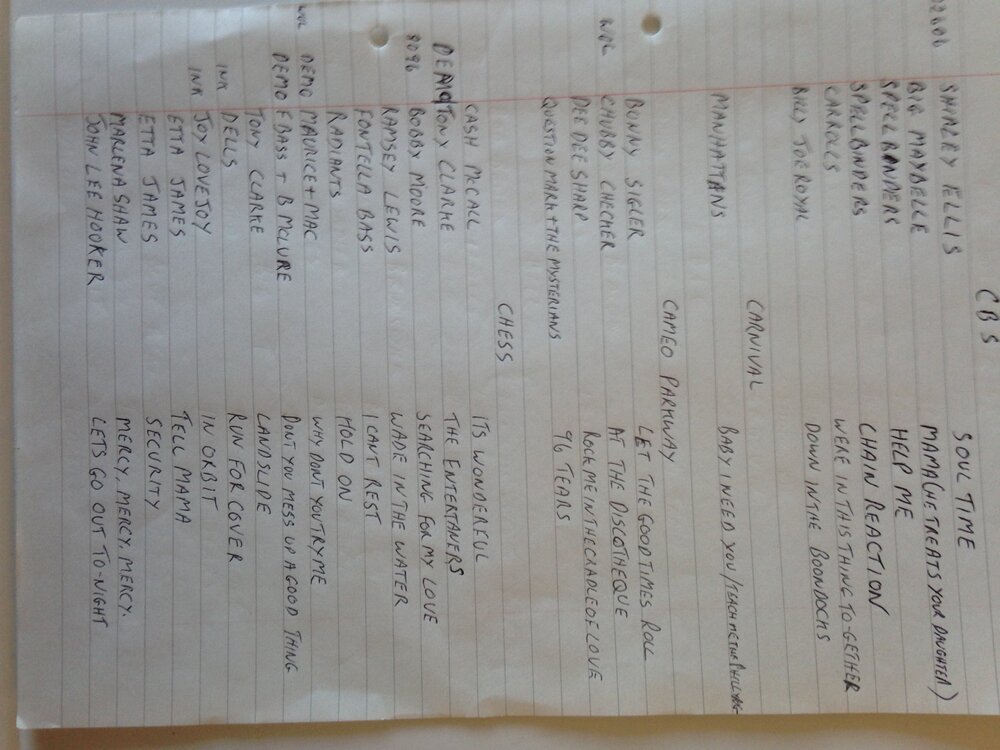 CBS
02606 SHIRLEY ELLIS SOUL TIME
BIG MAYBELLE MAMA (HE TREATS YOUR DAUGHTER)
SPELLBINDERS HELP ME
SPELLBINDERS CHAIN REACTION
CARROLLS WERE IN THIS THING TO-GETHER
BILLY JOE ROYAL DOWN IN THE BOONDOCKS
CARNIVAL
MANHATTANS BABY I NEED YOU/TEACH ME THE PHILLY
CAMEO PARKWAY
BUNNY SIGLER LET THE GOOD TIMES ROLL
WOL CHUBBY CHECKER AT THE DISCOTHEQUE
DEE DEE SHARP ROCK ME IN THE CRADLE OF LOVE
QUESTION MARK + THE MYSTERIANS 96 TEARS
CHESS
CASH McCALL ITS WONDERFUL
DEMO TONY CLARKE THE ENTERTANERS
8096 BOBBY MOORE SEARCHING FOR MY LOVE
RAMSEY LEWIS WADE IN THE WATER
FONTELLA BASS I CANT REST
RADIANTS HOLD ON
WOL DEMO MAURICE + MAC WHY DONT YOU TRY ME
DEMO F BASS + B MCLURE DONT YOU MESS UP A GOOD THING
TONY CLARKE LANDSLIDE
INK DELLS RUN FOR COVER
INK JOY LOVEJOY IN ORBIT
ETTA JAMES TELL MAMA
ETTA JAMES SECURITY
MARLENA SHAW MERCY, MERCY, MERCY.
JOHN LEE HOOKER LETS GO OUT TO-NIGHT